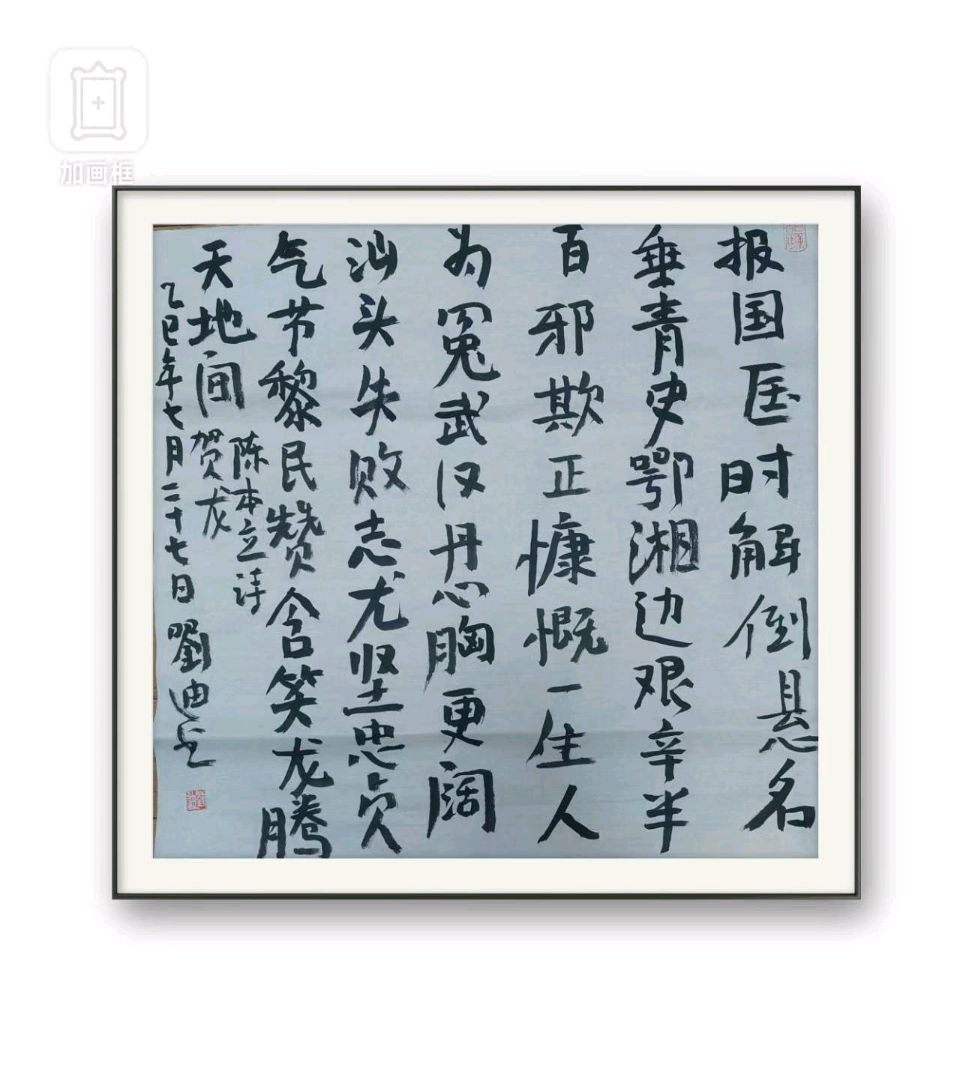 加画框
报国匡时解倒悬名
垂青史鄂湘边艰辛半
百邪欺正慷慨一生人
为冤武汉丹心胸更阔
汕头失败志尤坚忠贞
气节黎民赞含笑龙腾
天地间
陈本立诗
贺龙
乙巳年七月二十七日劉迪